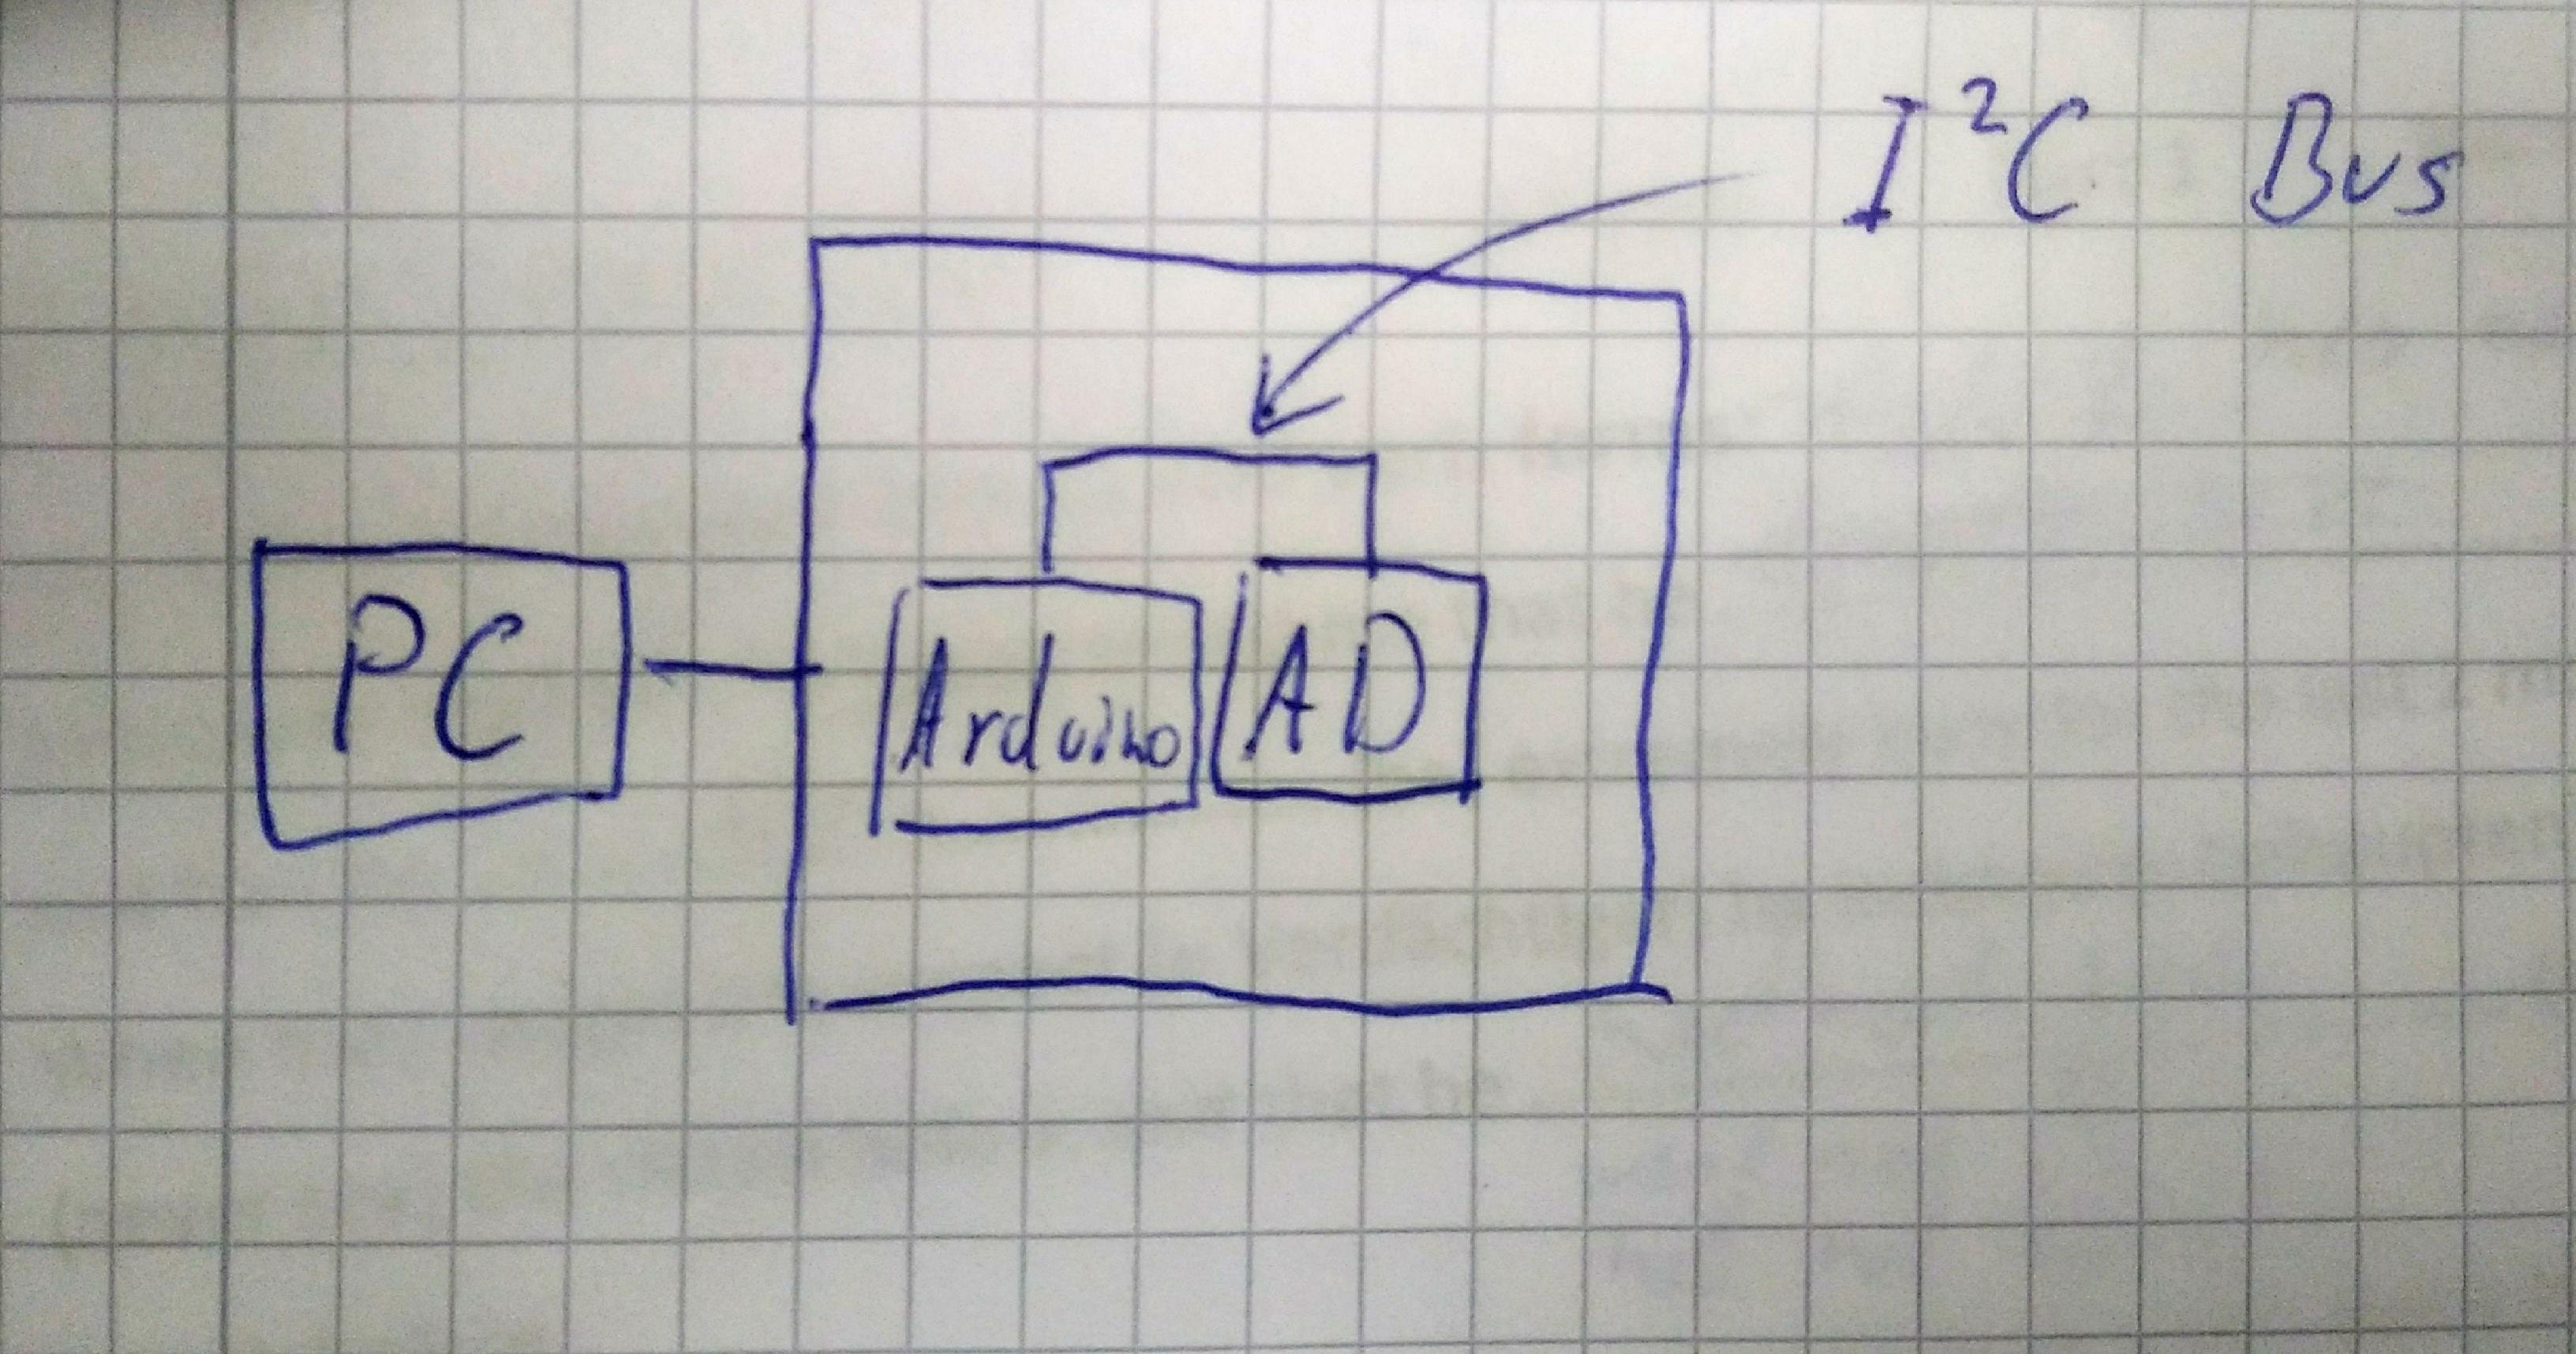 I²C Bus
PC
Arduino
AD